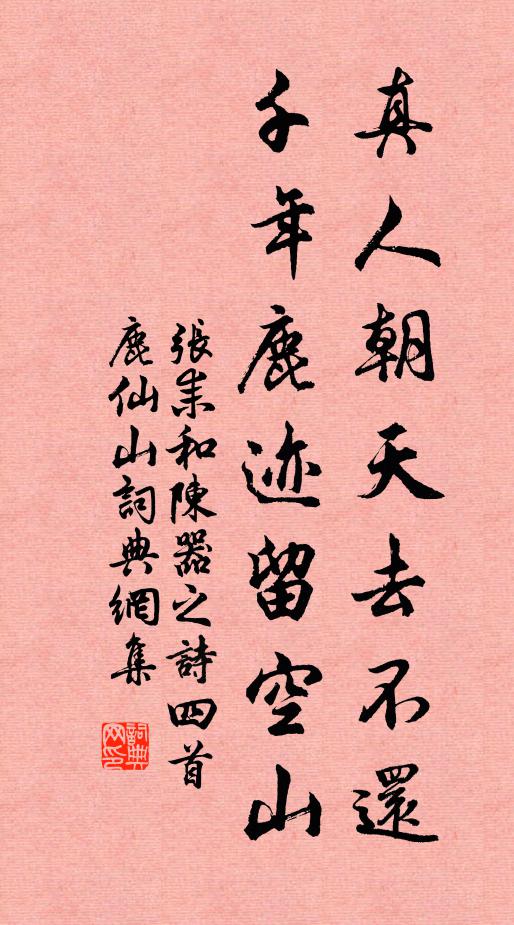 真人朝天去不還
千年鹿迹留空山
張耒和陳器之詩四首
鹿仙山詞典網集
詞典网印